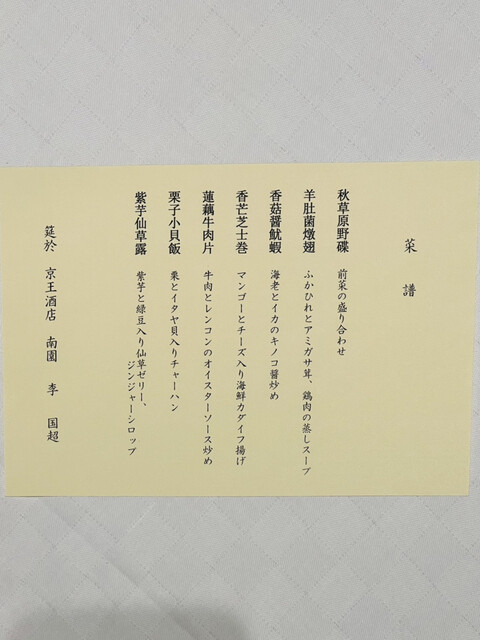 菜譜
秋草原野碟 前菜の盛り合わせ
羊肚菌燉翅 ふかひれとアミガサ茸、鶏肉の蒸しスープ
香菇醤魷蝦 海老とイカのキノコ醤炒め
香芒芝士巻 マンゴーとチーズ入り海鮮カダイフ揚げ
蓮藕牛肉片 牛肉とレンコンのオイスターソース炒め
栗子小貝飯 栗とイタヤ貝入りチャーハン
紫芋仙草露 紫芋と緑豆入り仙草ゼリー、
ジンジャーシロップ
筵於 京王酒店 南園 李 国超